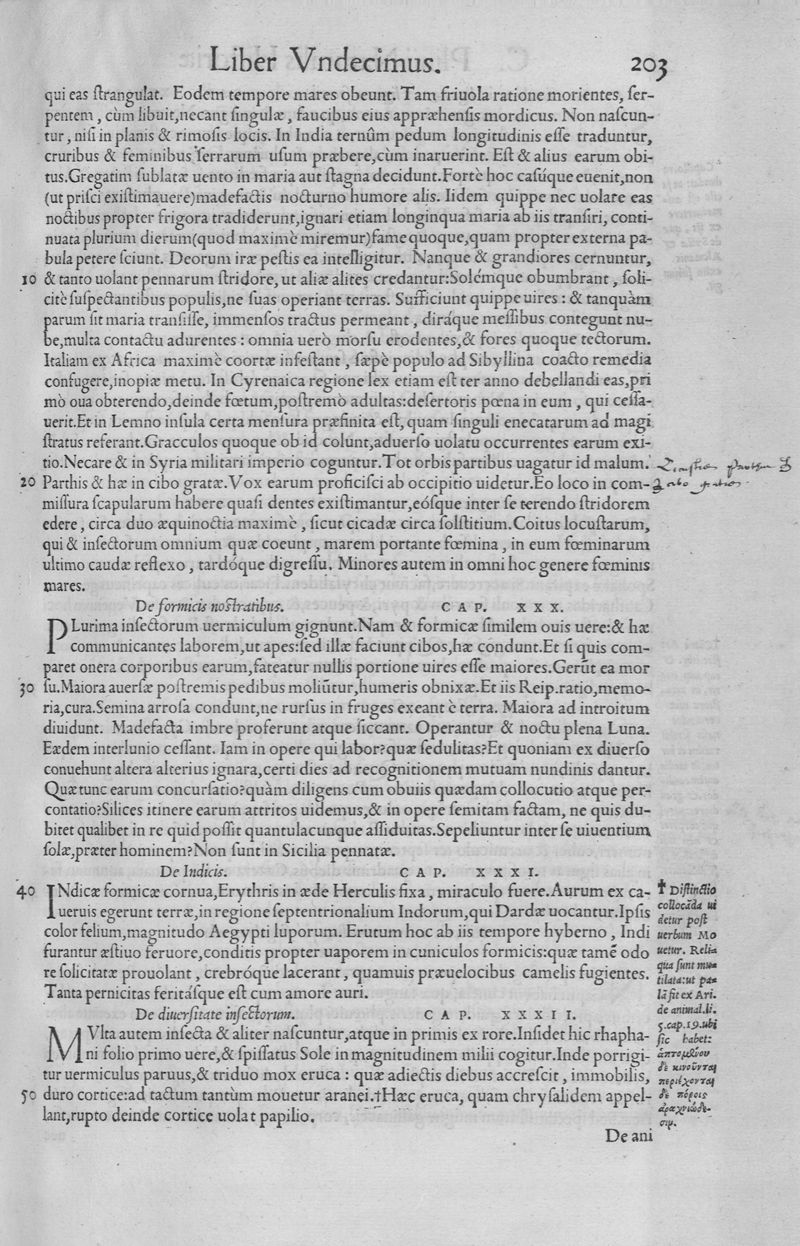 Liber Vndecimus. 203
qui eas ſtrangulat. Eodem tempore mares obeunt. Tam friuola ratione morientes, ſer-
pentem, cùm libuit,necant ſingulæ, faucibus eius appræhenſis mordicus. Non naſcun-
tur, niſi in planis & rimoſis locis. In India ternûm pedum longitudinis eſſe traduntur,
cruribus & feminibus ſerrarum uſum præbere,cùm inaruerint. Eſt & alius earum obi-
tus.Gregatim ſublatæ uento in maria aut ſtagna decidunt.Fortè hoc caſúque euenit,non
(ut priſci exiſtimauere)madefactis nocturno humore alis. Iidem quippe nec uolare eas
noctibus propter frigora tradiderunt,ignari etiam longinqua maria ab iis tranſiri, conti-
nuata plurium dierum(quod maximè miremur)fame quoque,quam propter externa pa-
bula petere ſciunt. Deorum iræ peſtis ea intelligitur. Nanque & grandiores cernuntur,
10 & tanto uolant pennarum ſtridore, ut aliæ alites credantur:Solémque obumbrant, ſoli-
citè ſuſpectantibus populis,ne ſuas operiant terras. Sufficiunt quippe uires: & tanquàm
parum ſit maria tranſiſſe, immenſos tractus permeant, diráque meſſibus contegunt nu-
be,multa contactu adurentes: omnia uerò morſu erodentes,& fores quoque tectorum.
Italiam ex Africa maximè coortæ infeſtant, ſæpè populo ad Sibyllina coacto remedia
confugere,inopiæ metu. In Cyrenaica regione lex etiam eſt ter anno debellandi eas,pri
mò oua obterendo,deinde fœtum,poſtremò adultas:deſertoris pœna in eum, qui ceſſa-
uerit.Et in Lemno inſula certa menſura præfinita eſt, quam ſinguli enecatarum ad magi
ſtratus referant.Gracculos quoque ob id colunt,aduerſo uolatu occurrentes earum exi-
tio.Necare & in Syria militari imperio coguntur.Tot orbis partibus uagatur id malum.
20 Parthis & hæ in cibo gratæ.Vox earum proficiſci ab occipitio uidetur.Eo loco in com-
miſſura ſcapularum habere quaſi dentes exiſtimantur,eóſque inter ſe terendo ſtridorem
edere, circa duo æquinoctia maximè, ſicut cicadæ circa ſolſtitium.Coitus locuſtarum,
qui & inſectorum omnium quæ coeunt, marem portante fœmina, in eum fœminarum
ultimo caudæ reflexo, tardóque digreſſu. Minores autem in omni hoc genere fœminis
mares.
De formicis noſtratibus. CAP. XXX.
PLurima inſectorum uermiculum gignunt.Nam & formicæ ſimilem ouis uere:& hæ
communicantes laborem,ut apes:ſed illæ faciunt cibos,hæ condunt.Et ſi quis com-
paret onera corporibus earum,fateatur nullis portione uires eſſe maiores.Gerūt ea mor
30 ſu.Maiora auerſæ poſtremis pedibus moliūtur,humeris obnixæ.Et iis Reip.ratio,memo-
ria,cura.Semina arroſa condunt,ne rurſus in fruges exeant è terra. Maiora ad introitum
diuidunt. Madefacta imbre proferunt atque ſiccant. Operantur & noctu plena Luna.
Eædem interlunio ceſſant. Iam in opere qui labor?quæ ſedulitas?Et quoniam ex diuerſo
conuehunt altera alterius ignara,certi dies ad recognitionem mutuam nundinis dantur.
Quæ tunc earum concurſatio?quàm diligens cum obuiis quædam collocutio atque per-
contatio?Silices itinere earum attritos uidemus,& in opere ſemitam factam, ne quis du-
bitet qualibet in re quid poſſit quantulacunque aſſiduitas.Sepeliuntur inter ſe uiuentium
ſolæ,præter hominem?Non ſunt in Sicilia pennatæ.
De Indicis. CAP. XXXI.
40 INdicæ formicæ cornua,Erythris in æde Herculis fixa, miraculo fuere.Aurum ex ca-
ueruis egerunt terræ,in regione ſeptentrionalium Indorum,qui Dardæ uocantur.Ipſis
color felium,magnitudo Aegypti luporum. Erutum hoc ab iis tempore hyberno, Indi
furantur æſtiuo feruore,conditis propter uaporem in cuniculos formicis:quæ tamē odo
re ſolicitatæ prouolant, crebróque lacerant, quamuis præuelocibus camelis fugientes.
Tanta pernicitas feritáſque eſt cum amore auri.
De diuerſitate inſectorum. CAP. XXXII.
MVlta autem inſecta & aliter naſcuntur,atque in primis ex rore.Inſidet hic rhapha-
ni folio primo uere,& ſpiſſatus Sole in magnitudinem milii cogitur.Inde porrigi-
tur uermiculus paruus,& triduo mox eruca: quæ adiectis diebus accreſcit, immobilis,
50 duro cortice:ad tactum tantùm mouetur aranei.†Hæc eruca, quam chryſalidem appel-
lant,rupto deinde cortice uolat papilio.
De ani
† Diſtinctio
collocāda ui
detur poſt
uerbum Mo
uetur. Reli⸗
qua ſunt mu⸗
tilata:ut pa⸗
lā fit ex Ari.
de animal.li.
5.cap.19.ubi
ſic habet:
ἁπτομένου
δὲ κινοῦνται
περιέχονται
δὲ πόροις
ἀραχνιώδε-
σιν.